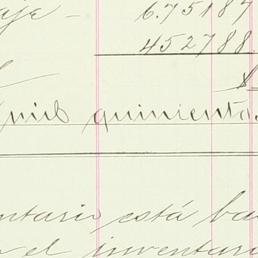 aje — 6.75187
452788
$
mil quinientos
ntario está ba
el inventari